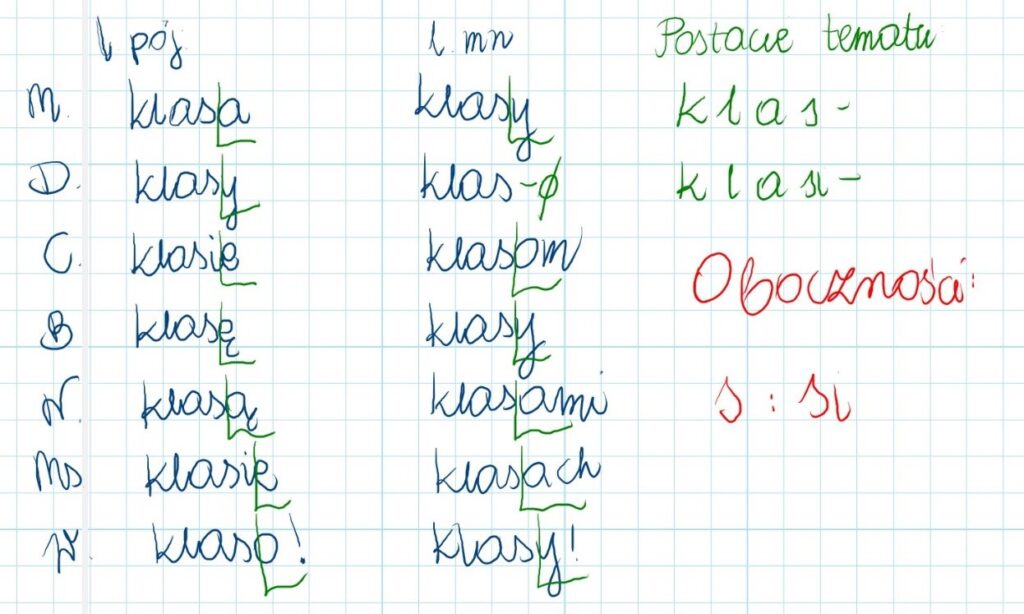 l poj l. mn Postacie tematu
M. klasa klasy klas-
D. klasy klas-ϕ klasi-
C. klasie klasom Oboczności:
B klasę klasy
N. klasą klasami s : si
Ms klasie klasach
W. klaso! klasy!